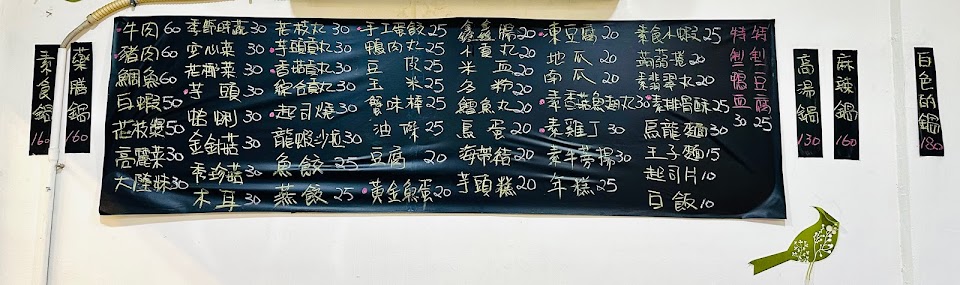 素食鍋160
藥膳鍋160
牛肉60
豬肉60
鯛魚60
白蝦50
花枝漿50
高麗菜30
大陸妹30
季節時蔬30
空心菜30
花椰菜30
芋頭30
蛤蜊30
金針菇30
秀珍菇30
木耳30
花枝丸30
芋頭貢丸30
香菇貢丸30
綜合貢丸30
起司燒30
龍蝦沙拉30
魚餃25
燕餃25
手工蛋餃25
鴨肉丸25
豆皮25
玉米25
蟹味棒25
油條25
豆腐20
黃金魚蛋20
鑫鑫腸20
小貢丸20
米血20
冬粉20
鱈魚丸20
鳥蛋20
海帶結20
芋頭糕20
凍豆腐20
地瓜20
南瓜20
素香菇魚翅丸30
素雞丁30
素牛蒡揚30
年糕25
素食小蝦25
蒟蒻捲20
素翡翠丸20
素排骨酥25
烏龍麵30
王子麵15
起司片10
白飯10
特製鴨血30
特製豆腐25
高湯鍋130
麻辣鍋160
白色的鍋180